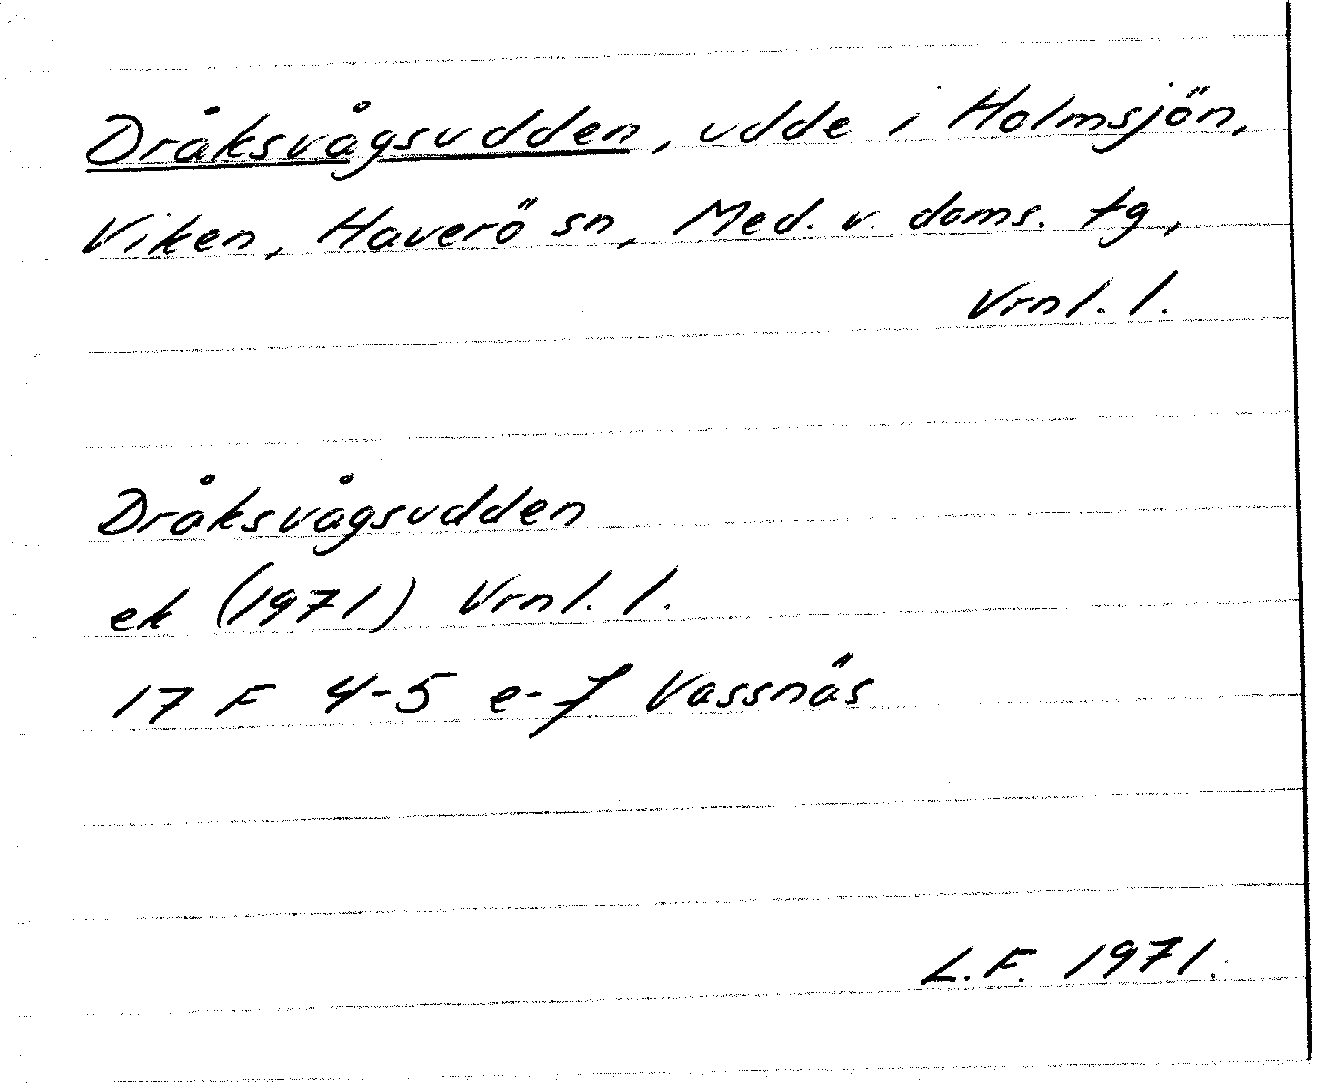 Dråksvågsudden, udde i Holmsjön,
Viken, Haverö sn, Med. v. doms. tg,
Vrnl. l.
Dråksvågsudden
ek (1971) Vrnl. l.
17 F 4-5 e-f Vassnäs
L.F. 1971.